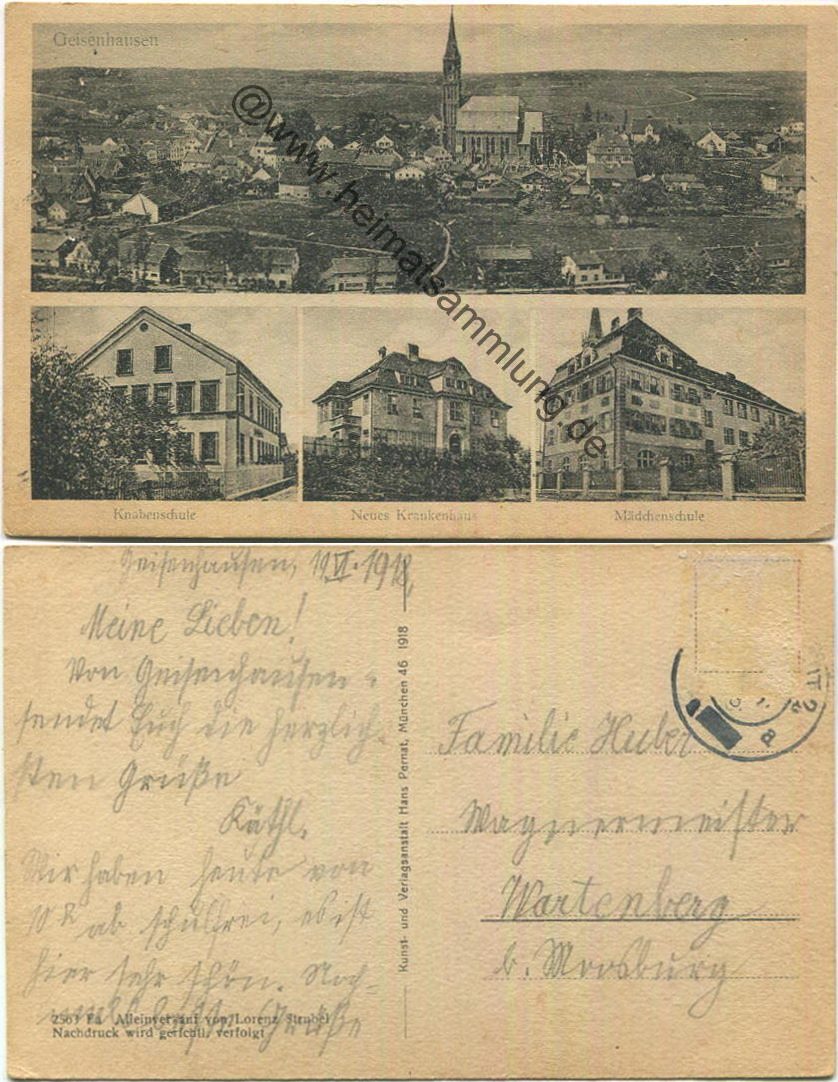 Geisenhausen
@www.heimatsammlung.de
Knabenschule
Neues Krankenhaus
Mädchenschule
Geisenhausen, 19.VI.1918,
Meine Lieben!
Von Geisenhausen
sendet Euch die herzlich-
sten Grüße
Käthl.
Wir haben heute von
10 ab schulfrei, es ist
hier sehr schön. Noch-
Grüße
2563 Fa Alleinversand von Lorenz Strobel
Nachdruck wird gerichtl. verfolgt
Kunst- und Verlagsanstalt Hans Pernat, München 46 1918
Familie Huber
Wagnermeister
Wartenberg
b. Moosburg